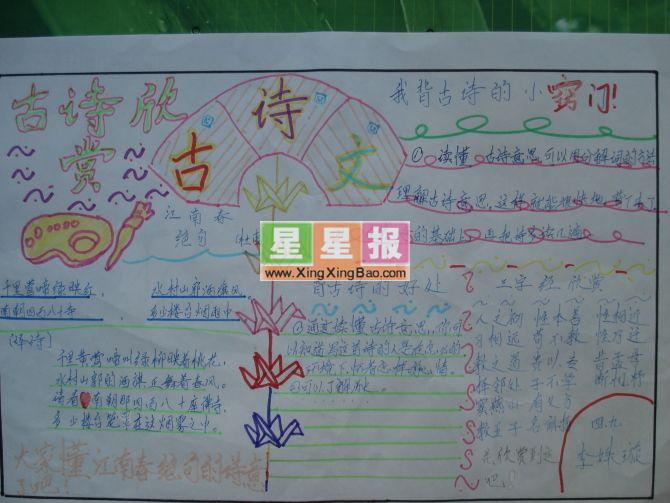 古诗欣
赏
古诗文
我背古诗的小窍门!
①读懂古诗意思,可以用分解词的方法
理解古诗意思,这样就能
的基础上,再把诗文读几遍
江南春
绝句
(杜
星星报
www.XingXingBao.com
千里莺啼绿映红
水村山郭酒旗风
南朝四百八十寺
多少楼台烟雨中
[译诗]
千里黄莺啼叫绿柳映着桃花,
水村山郭的酒旗
南朝四百八十座佛寺
多少楼台笼罩在这烟雾之中。
大家懂江南春绝句的诗意
了吧!
背古诗的好处
①通过读懂古诗意思,你可
以知道写这首诗的人是在怎么的
可以了解历史
三字经欣赏
人之初 性本善 性相近
习相远 苟不教 性乃迁
教之道 贵以专 昔孟母
择邻处 子不学 断机杼
窦燕山 有义方
教五子 名俱扬
先欣赏到这
吧!